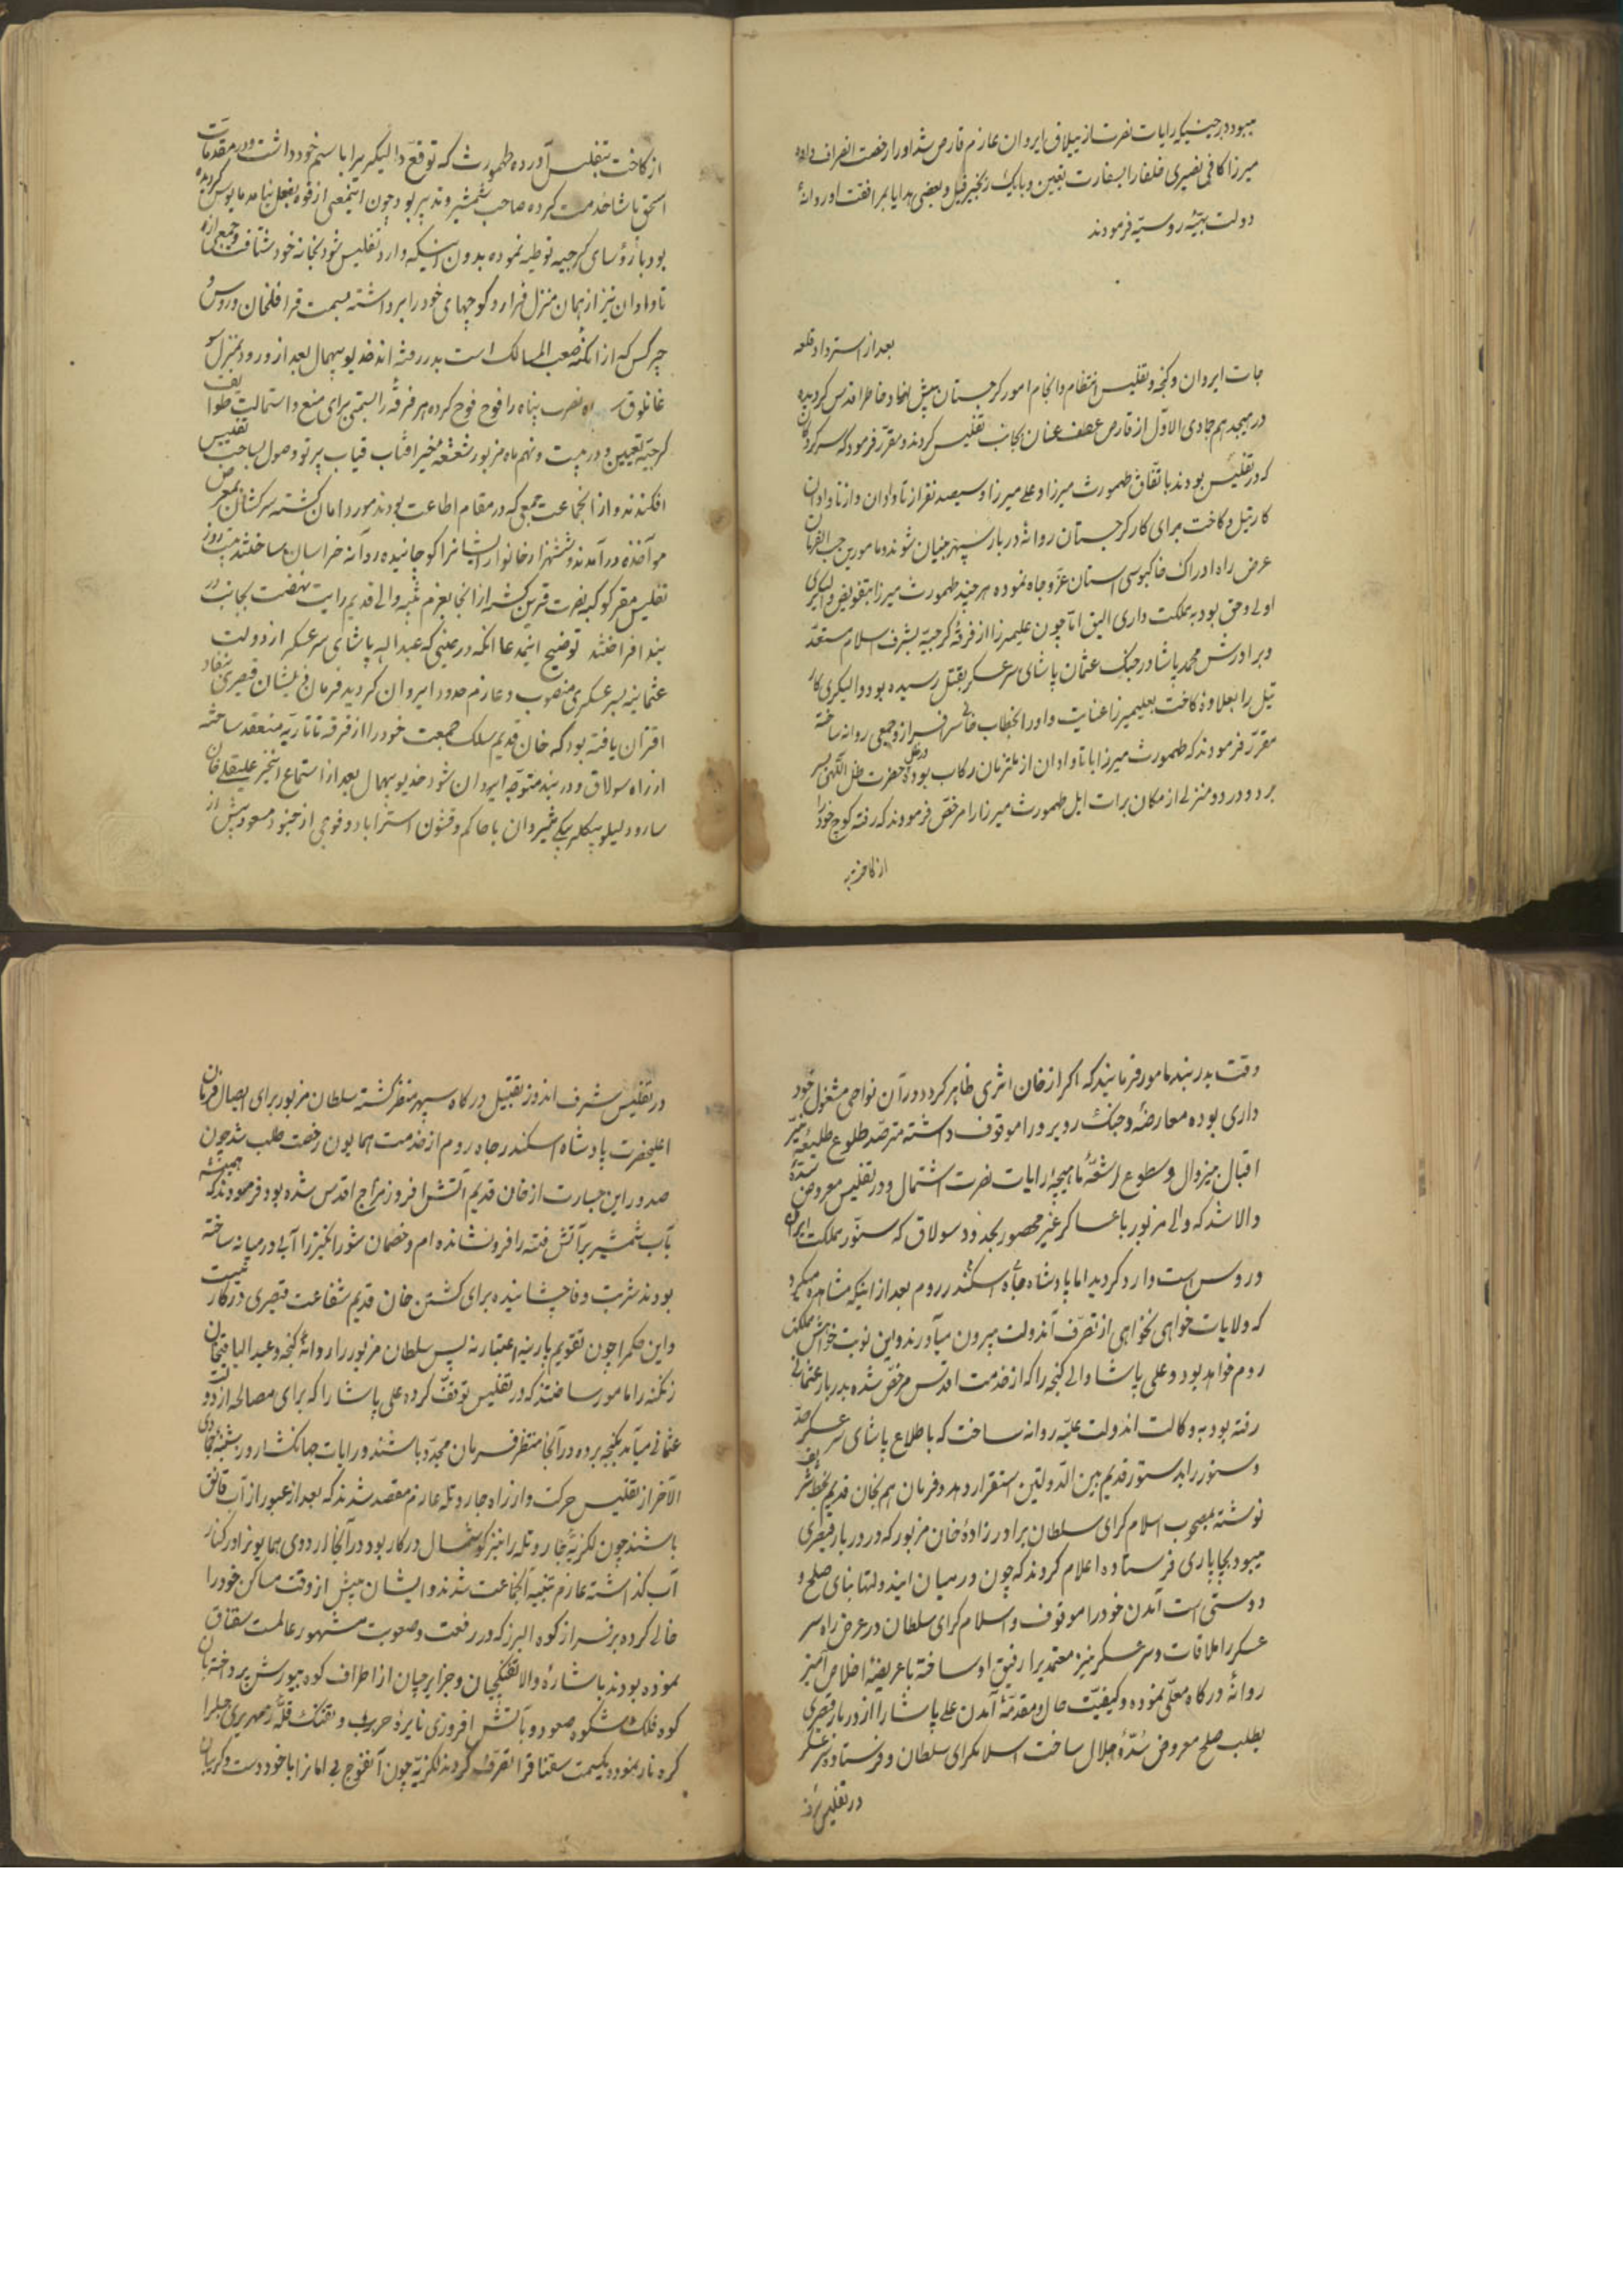 میبود در حینیکه رایات نصرت از ییلاق ایروان عازم قارص شد او را رخصت انصراف داده
میرزا کافی نصیری خلفا را بسفارت تعیین و با یک زنجیر فیل و بعضی هدایا بمرافقت او روانهٔ
دولت بهیّهٔ روسیّه فرمودند
بعد از استرداد قلعه
جات ایروان و گنجه و تفلیس انتظام و انجام امور گرجستان پیش نهاد خاطر اقدس گردیده
در هیجدهم جمادی الاوّل از قارص عطف عنان بجانب تفلیس کردند و مقرّر فرمود که سرکردگان
که در تفلیس بودند باتفاق طهمورث میرزا و علی میرزا و سیصد نفر از تاوادان و ازناوادان
کارتیل و کاخت برای کار گرجستان روانهٔ دربار سپهر بنیان شوند و مامورین حسب الفرمان
عرض راه ادراک خاکبوسی آستان عزّ و جاه نموده هر چند طهمورث میرزا بتفویض والیگری
اولی و حق بود به مملکت داری الیق امّا چون علیمیرزا از فرقهٔ گرجیّه بشرف اسلام مستعدّ
و برادرش محمد پاشا در جنگ عثمان پاشای سرعسکر بقتل رسیده بود والیگری کار
تیل را بعلاوهٔ کاخت بعلیمیرزا عنایت و او را بخطاب خانی سرفراز و جمعی روانه ساخته
مقرّر فرمودند که طهمورث میرزا با تاوادان از ملتزمان رکاب بوده حضرت ظل اللهی بسر
برد و در دو منزلی از مکان برات ایل طهمورث میرزا را مرخص فرمودند که رفته کوچ خود را
از کاخت
از کاخت بتفلیس آورده طهمورث که توقع والیگریرا باسم خود داشت و در مقدمات
اسحق پاشا خدمت کرده صاحب شمشیر و تدبیر بود چون اینمعنی از قوه بفعل نیامد مایوس گردیده
بود با رؤسای گرجیه توطیه نموده بدون اینکه وارد تفلیس شود بخانه خود شتافت و جمعی از
تاوادان نیز از همان منزل فرار و کوچهای خود را برداشته بسمت قراقلخان و روس و
چرکس که از امکنهٔ صعب المسالک است بدر رفته اند خدیو بیهمال بعد از ورود بمنزل سو
غانلوق نصرت پناه را فوج فوج کرده هر فرقه را بسمتی برای منع و استمالت طوایف
گرجیّه تعیین و در بیست و نهم ماه مزبور شعشعهٔ خیر آفتاب قباب پرتو وصول بساحت تفلیس
افکندند و از انجماعت جمعی که در مقام اطاعت بودند مورد امان گشته سرکشان بمعرض
مواخذه درآمدند و ششهزار خانوار ایشانرا کوچانیده روانه خراسان ساختند بیست روز
تفلیس مقر کوکبهٔ نصرت قرین گشته از انجا بعزم تنبیه والی قدیم رایت نهضت بجانب در
بند افراختند توضیح اینمدعا انکه در حینی که عبدالله پاشای سرعسکر از دولت
عثمانیه بسر عسکری منصوب و عازم حدود ایروان گردید فرمان ذیشان قیصری بنفاد
اقتران یافته بود که خان قدیم سلک جمعیت خود را از فرقهٔ تاتاریه منعقد ساخته
از راه سولاق و دربند متوجّه ایروان شود خدیو بیهمال بعد از استماع اینخبر علیقلی خان
سارولیلو بیگلربیگی شیروان با حاکم و قشون استراباد و فوجی از جنود مسعود پیش از
وقت بدربند مامور فرمایند که اگر از خان اثری ظاهر گردد در آن نواحی مشغول خود
داری بوده معارضه و جنگ روبرو را موقوف داشته مترصّد طلوع طلیعهٔ نیّر
اقبال بیزوال و سطوع اشعّهٔ ماهیچهٔ رایات نصرت اشتمال و در تفلیس معروض سدّهٔ
والا شد که والی مزبور با عساکر غیر محصور بحدود سولاق که سنور مملکت ایران
و روس است وارد گردید اما پادشاه جاه اسکندر روم بعد از اینکه مشاهده میکرد
که ولایات خواهی نخواهی از تصرّف آندولت بیرون میآورند و این نوبت خواهش مملکت
روم خواهد بود و علی پاشا والی گنجه را که از خدمت اقدس مرخّص شده بدربار عثمانی
رفته بود به وکالت اندولت علیّه روانه ساخت که باطلاع پاشای سرعسکر حدّ
و سنور را بدستور قدیم بین الدّولتین استقرار دهد و فرمان هم بخان قدیم بخط شریف
نوشته بمصحوب اسلام گرای سلطان برادر زادهٔ خان مزبور که در دربار قیصری
میبود بچاپاری فرستاده اعلام کردند که چون در میان ایندولتها بنای صلح و
دوستی است آمدن خود را موقوف و اسلام گرای سلطان در عرض راه سر
عسکر را ملاقات و سرعسکر نیز معتمدیرا رفیق او ساخته با عریضهٔ اخلاص آمیز
روانهٔ درگاه معلّی نموده و کیفیّت حال و مقدمّهٔ آمدن علی پاشا را از دربار قیصری
بطلب صلح معروض سدّهٔ جلال ساخت اسلامگرای سلطان و فرستادهٔ سرعسکر
در تفلیس شرف
در تفلیس شرف اندوز تقبیل درگاه سپهر منظر گشته سلطان مزبور برای ایصال فرمان
اعلیحضرت پادشاه اسکندر جاه روم از خدمت همایون رخصت طلب شد چون
صدور این جسارت از خان قدیم آتش افروز مزاج اقدس شده بود فرمودند که همیشه
بآب شمشیر بر آتش فتنه را فرونشانده ام و خصمان شورانگیز را آبی در میانه ساخته
بودند شربت وفا چشانیده برای کشتن خان قدیم شفاعت قیصری در کار نیست
و این حکم را چون تقویم پارینه اعتبار نه پس سلطان مزبور را روانهٔ گنجه و عبدالباقیخان
زنگنه را مامور ساختند که در تفلیس توقف کرده علی پاشا را که برای مصالحه از دولت
عثمانی میآید بگنجه برده در آنجا منتظر فرمان مجدّد باشند و رایات جهانگشا روز شنبهٔ جمادی
الآخر از تفلیس حرکت و از راه جار و تله عازم مقصد شدند که بعد از عبور از آب قانق
باشند چون لگزیّهٔ جار و تله را نیز گوشمال در کار بود در آنجا اردوی همایونرا در کنار
آب گذاشته عازم تنبیه آنجماعت شدند و ایشان پیش از وقت مساکن خود را
خالی کرده بر فراز کوه البرز که در رفعت و صعوبت مشهور عالمست سقناق
نموده بودند باشارهٔ والا تفنگچیان و جزایرچیان از اطراف کوه بیورش پرداخته بان
کوه فلک شکوه صعود و بآتش افروزی نایرهٔ حرب و تفنگ قلّهٔ زمهریری جبلرا
کره نار نمود و یکسمت سقناقرا تصرّف کردند لگزیّه چون آنفوج بی امانرا با خود دست و گریبان